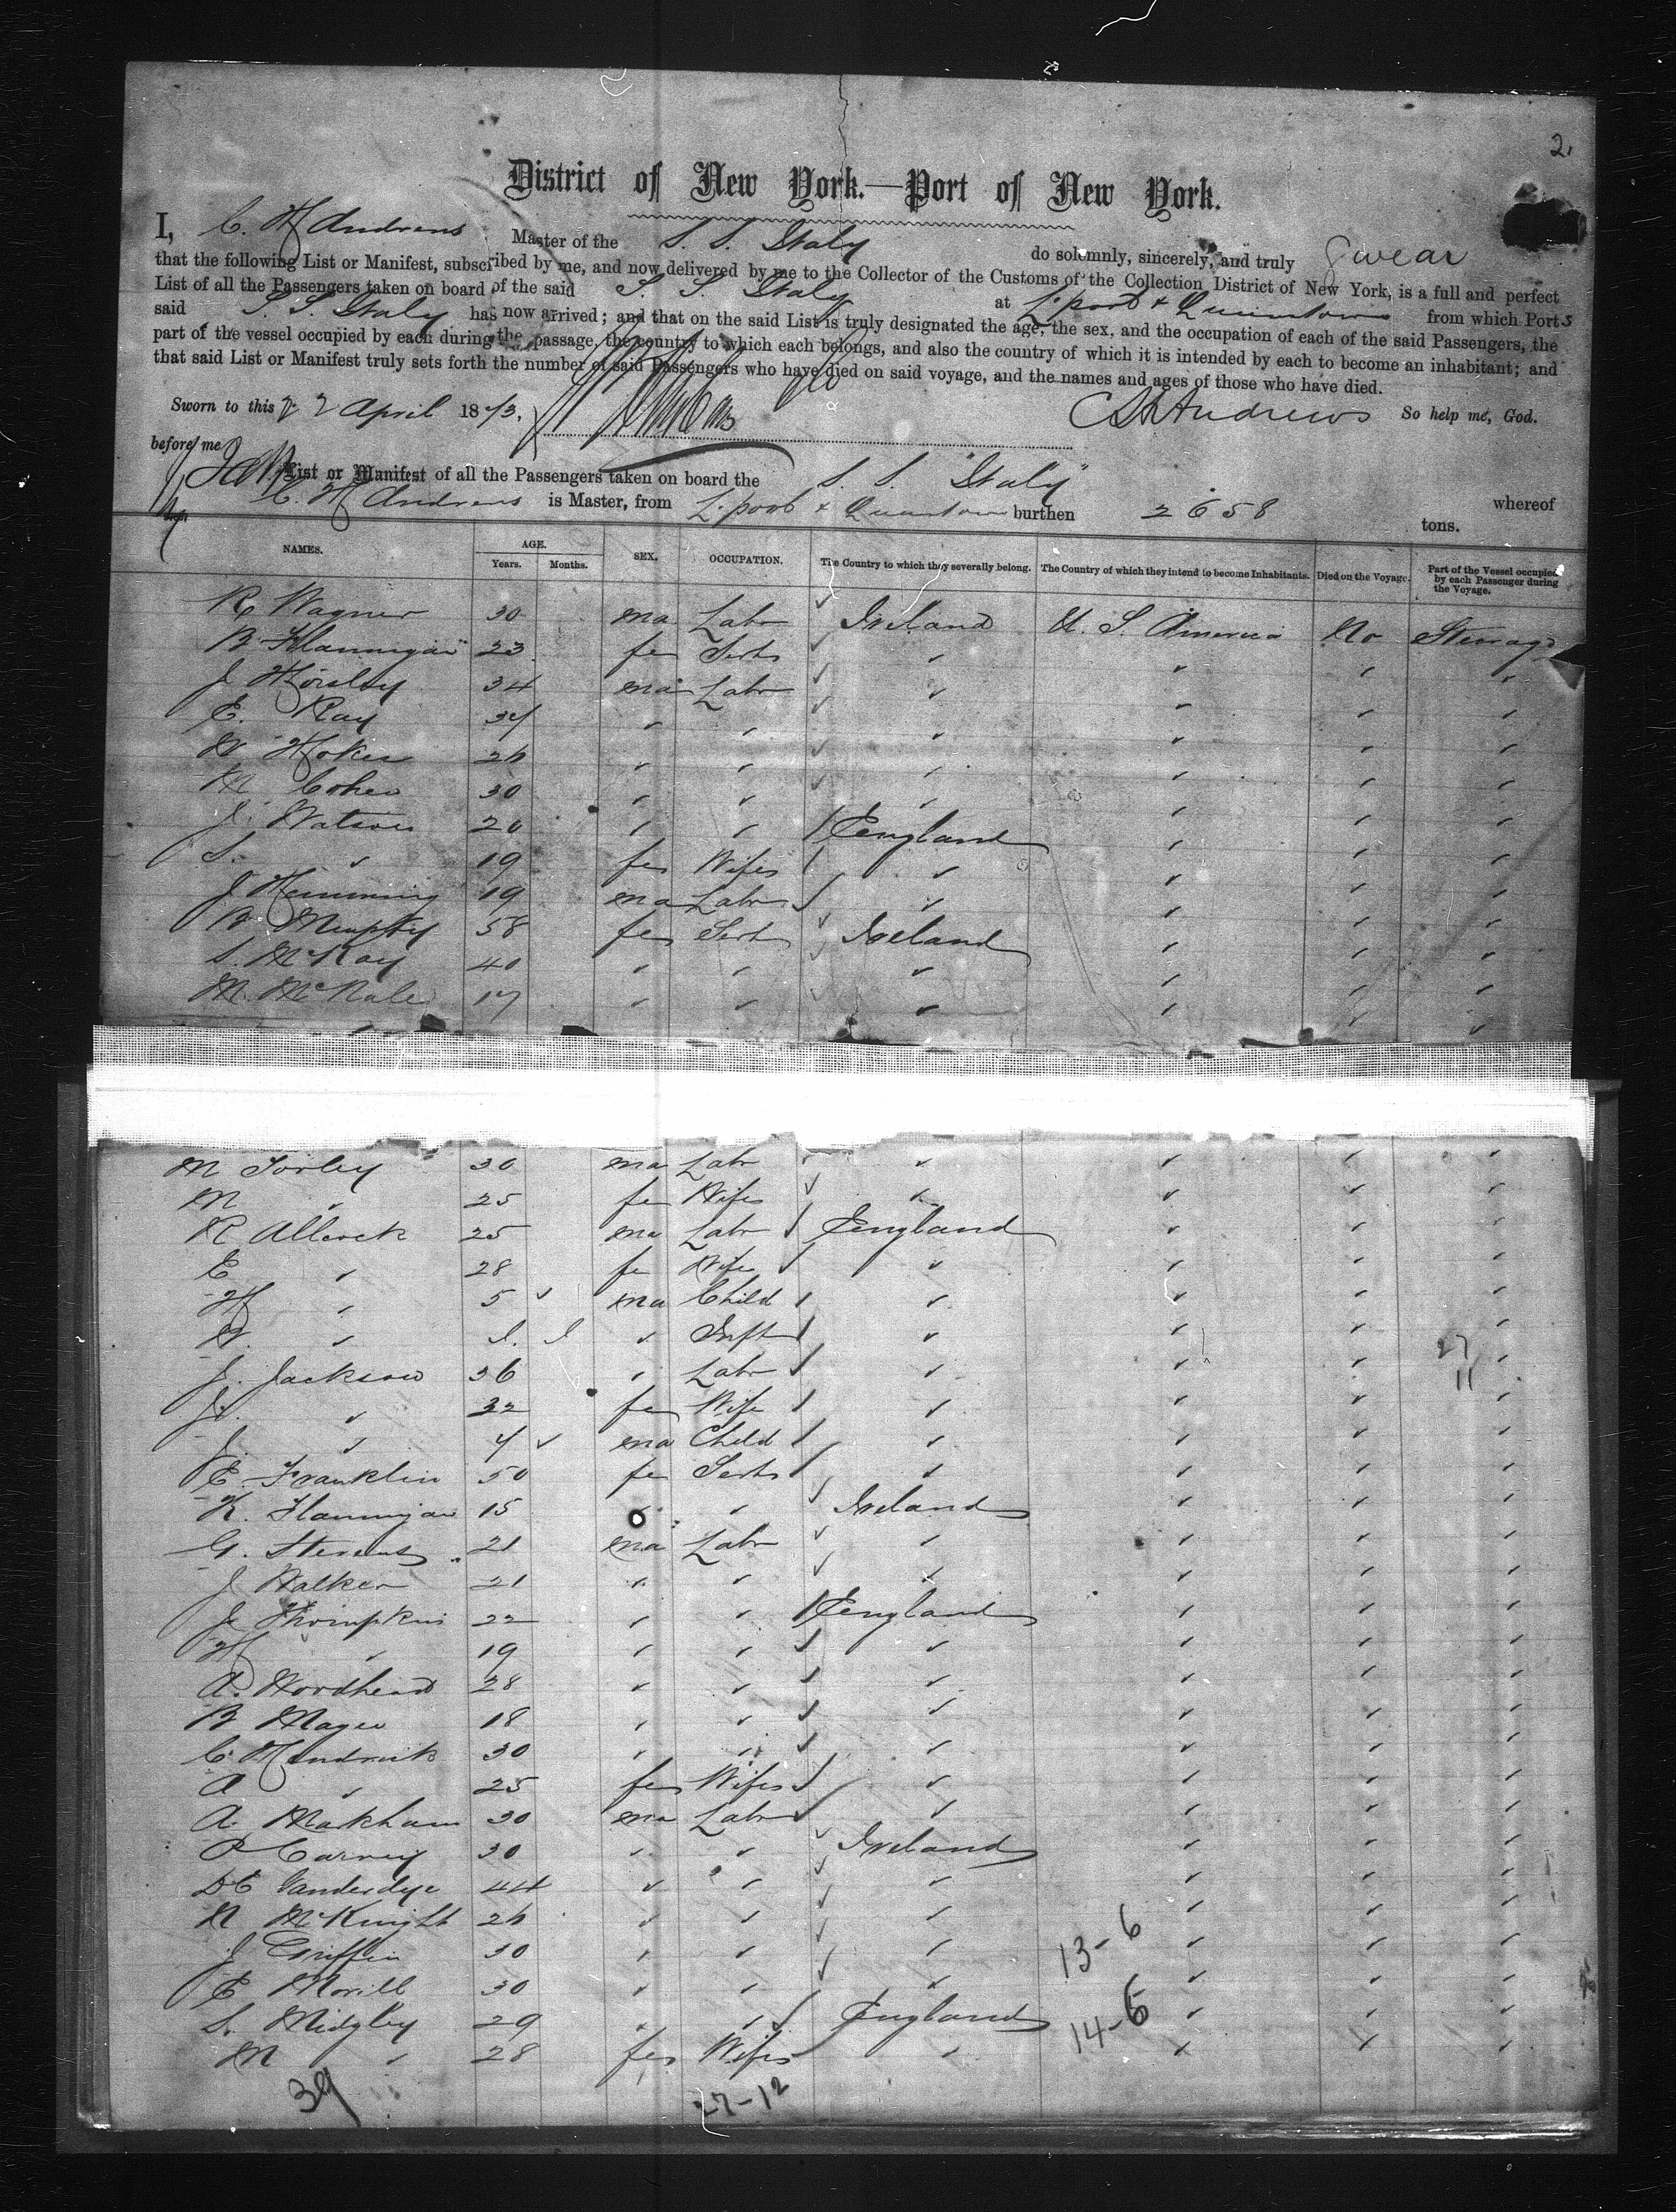 2.
District of New York.—Port of New York.
I, C. H. Andrews Master of the S. S. Italy do solemnly, sincerely, and truly swear
that the following List or Manifest, subscribed by me, and now delivered by me to the Collector of the Customs of the Collection District of New York, is a full and perfect
List of all the Passengers taken on board of the said S. S. Italy at L'pool + Queenstown from which Ports
said S. S. Italy has now arrived; and that on the said List is truly designated the age, the sex, and the occupation of each of the said Passengers, the
part of the vessel occupied by each during the passage, the country to which each belongs, and also the country of which it is intended by each to become an inhabitant; and
that said List or Manifest truly sets forth the number of said Passengers who have died on said voyage, and the names and ages of those who have died.
Sworn to this 22 April 1873. C H Andrews So help me, God.
before me
List or Manifest of all the Passengers taken on board the S. S. "Italy" whereof
C. H. Andrews is Master, from L'pool + Queenstown burthen 2658 tons.
NAMES. AGE. Years. Months. SEX. OCCUPATION. The Country to which they severally belong. The Country of which they intend to become Inhabitants. Died on the Voyage. Part of the Vessel occupied by each Passenger during the Voyage.
R Wagner 30 ma Labr Ireland U. S. America No Steerage
B Flannigan 23 fe Servt " " " "
J 34 ma Labr " " " "
E. Ray 34 " " " " " "
W 26 " " " " " "
M Cohen 30 " " " " " "
J. Watson 20 " " England " " "
S. " 19 fe Wife " " " "
J Hemming 19 ma Labr " " " "
B Murphy 58 fe Servt Ireland " " "
S. McKay 40 " " " " " "
M. McNale 17 " " " " " "
M Torley 30 ma Labr " " " "
M " 25 fe Wife " " " "
R Allcock 25 ma Labr England " " "
E " 28 fe Wife " " " "
H " 5 ma Child " " " "
W. " " Inft " " " "
J. Jackson 36 " Labr " " " "
J. " 32 fe Wife " " " "
J. " 4 ma Child " " " "
27
11
E. Franklin 50 fe Servt " " " "
K. Flannigan 15 " " Ireland " " "
G. Stevens 21 ma Labr " " " "
J Walker 21 " " " " " "
J Thompkins 22 " " England " " "
H " 19 " " " " " "
A. Woodhead 28 " " " " " "
B Magee 18 " " " " " "
C. Hendrick 30 " " " " " "
A " 25 fe Wife " " " "
A. Markham 30 ma Labr " " " "
P Carney 30 " " Ireland " " "
D C Vanderdye 44 " " " " " "
N McKnight 26 " " " " " "
J Griffin 30 " " " " " "
13-6
E Morill 30 " " " " " "
S. Midgley 29 " " England " " "
14-6
M " 28 fe Wife " " " "
39 27-12